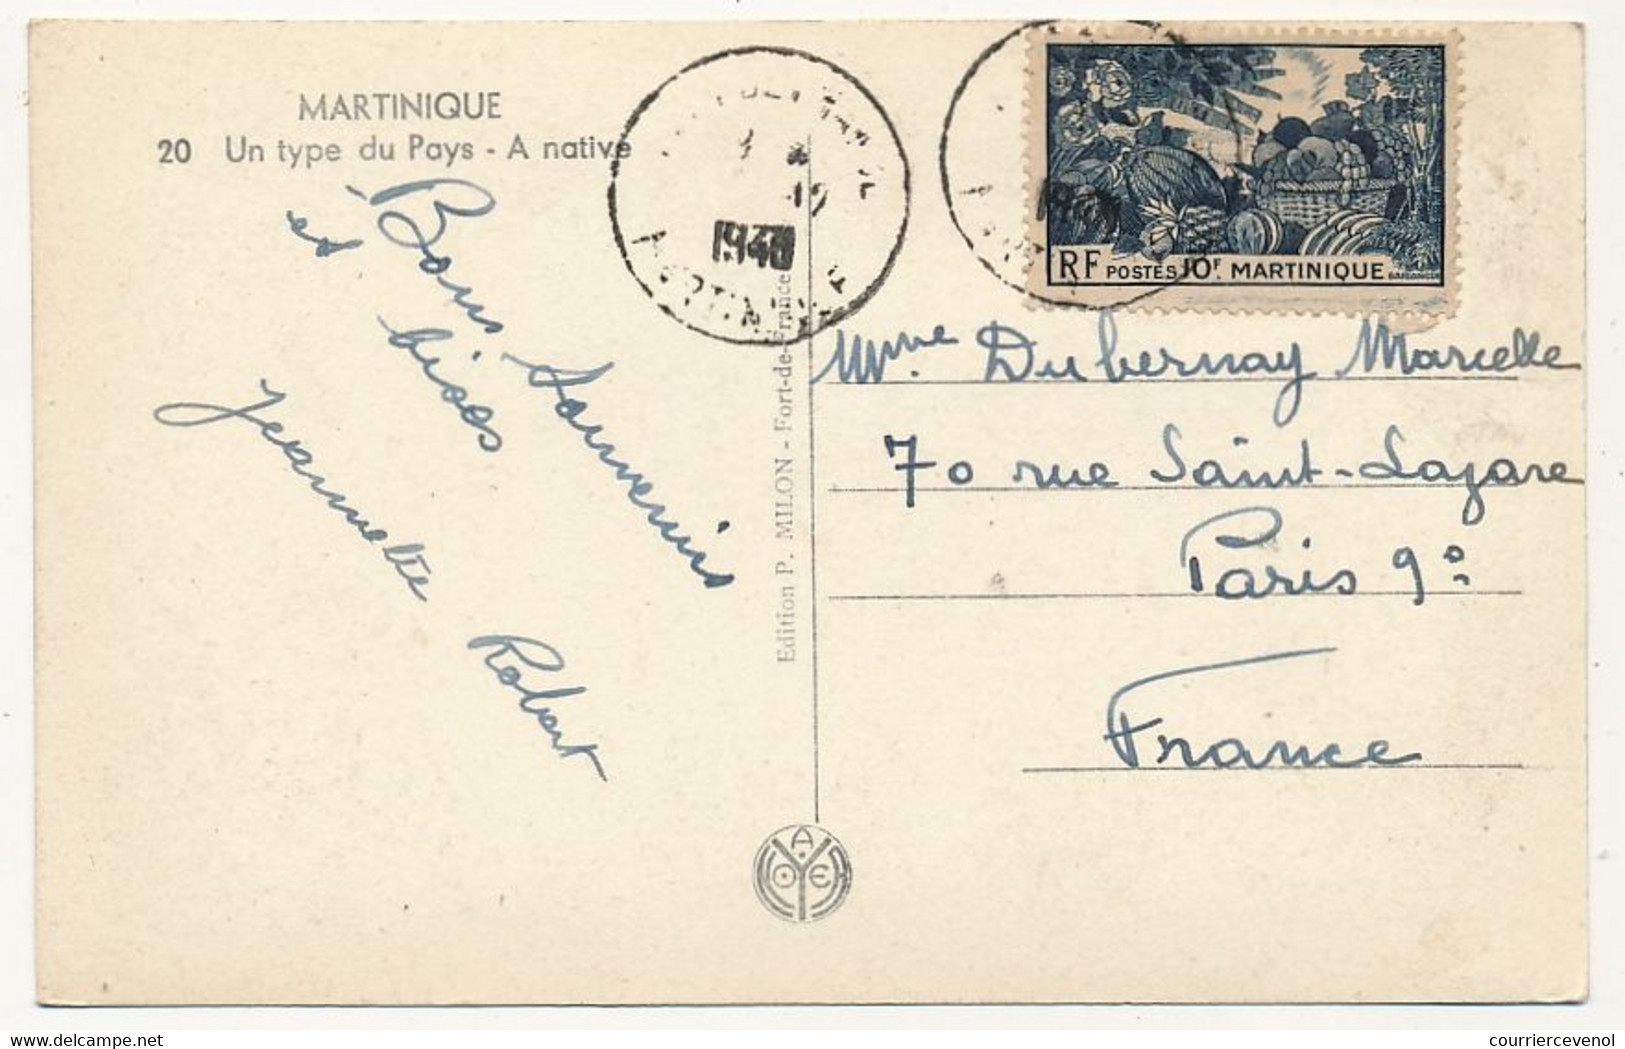 MARTINIQUE
20 Un type du Pays - A native
Bons Souvenirs
et bises
Jeannette Robert
Edition P. MILON - Fort-de-France
1948
MARTINIQUE
RF POSTES 10F MARTINIQUE
Mme. Dubernay Marcelle
70 rue Saint-Lazare
Paris 9e
France
A
YOE
Delcampe.net
courriercevenol